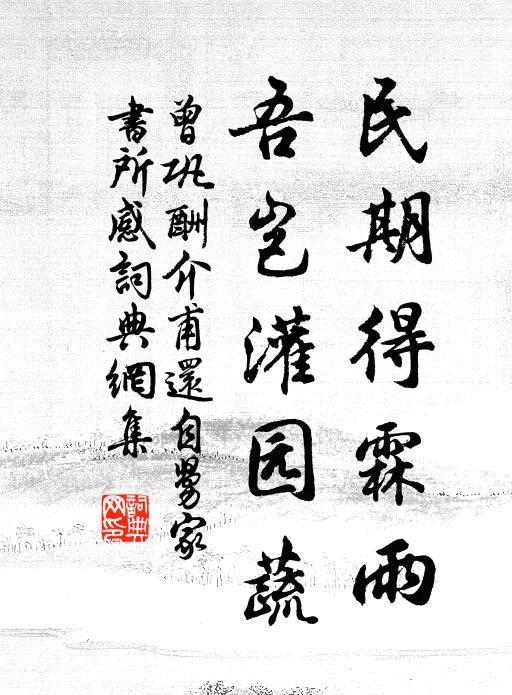 民期得霖雨
吾岂灌园蔬
曾巩酬介甫還自舅家
書所感詞典網集
詞典网印